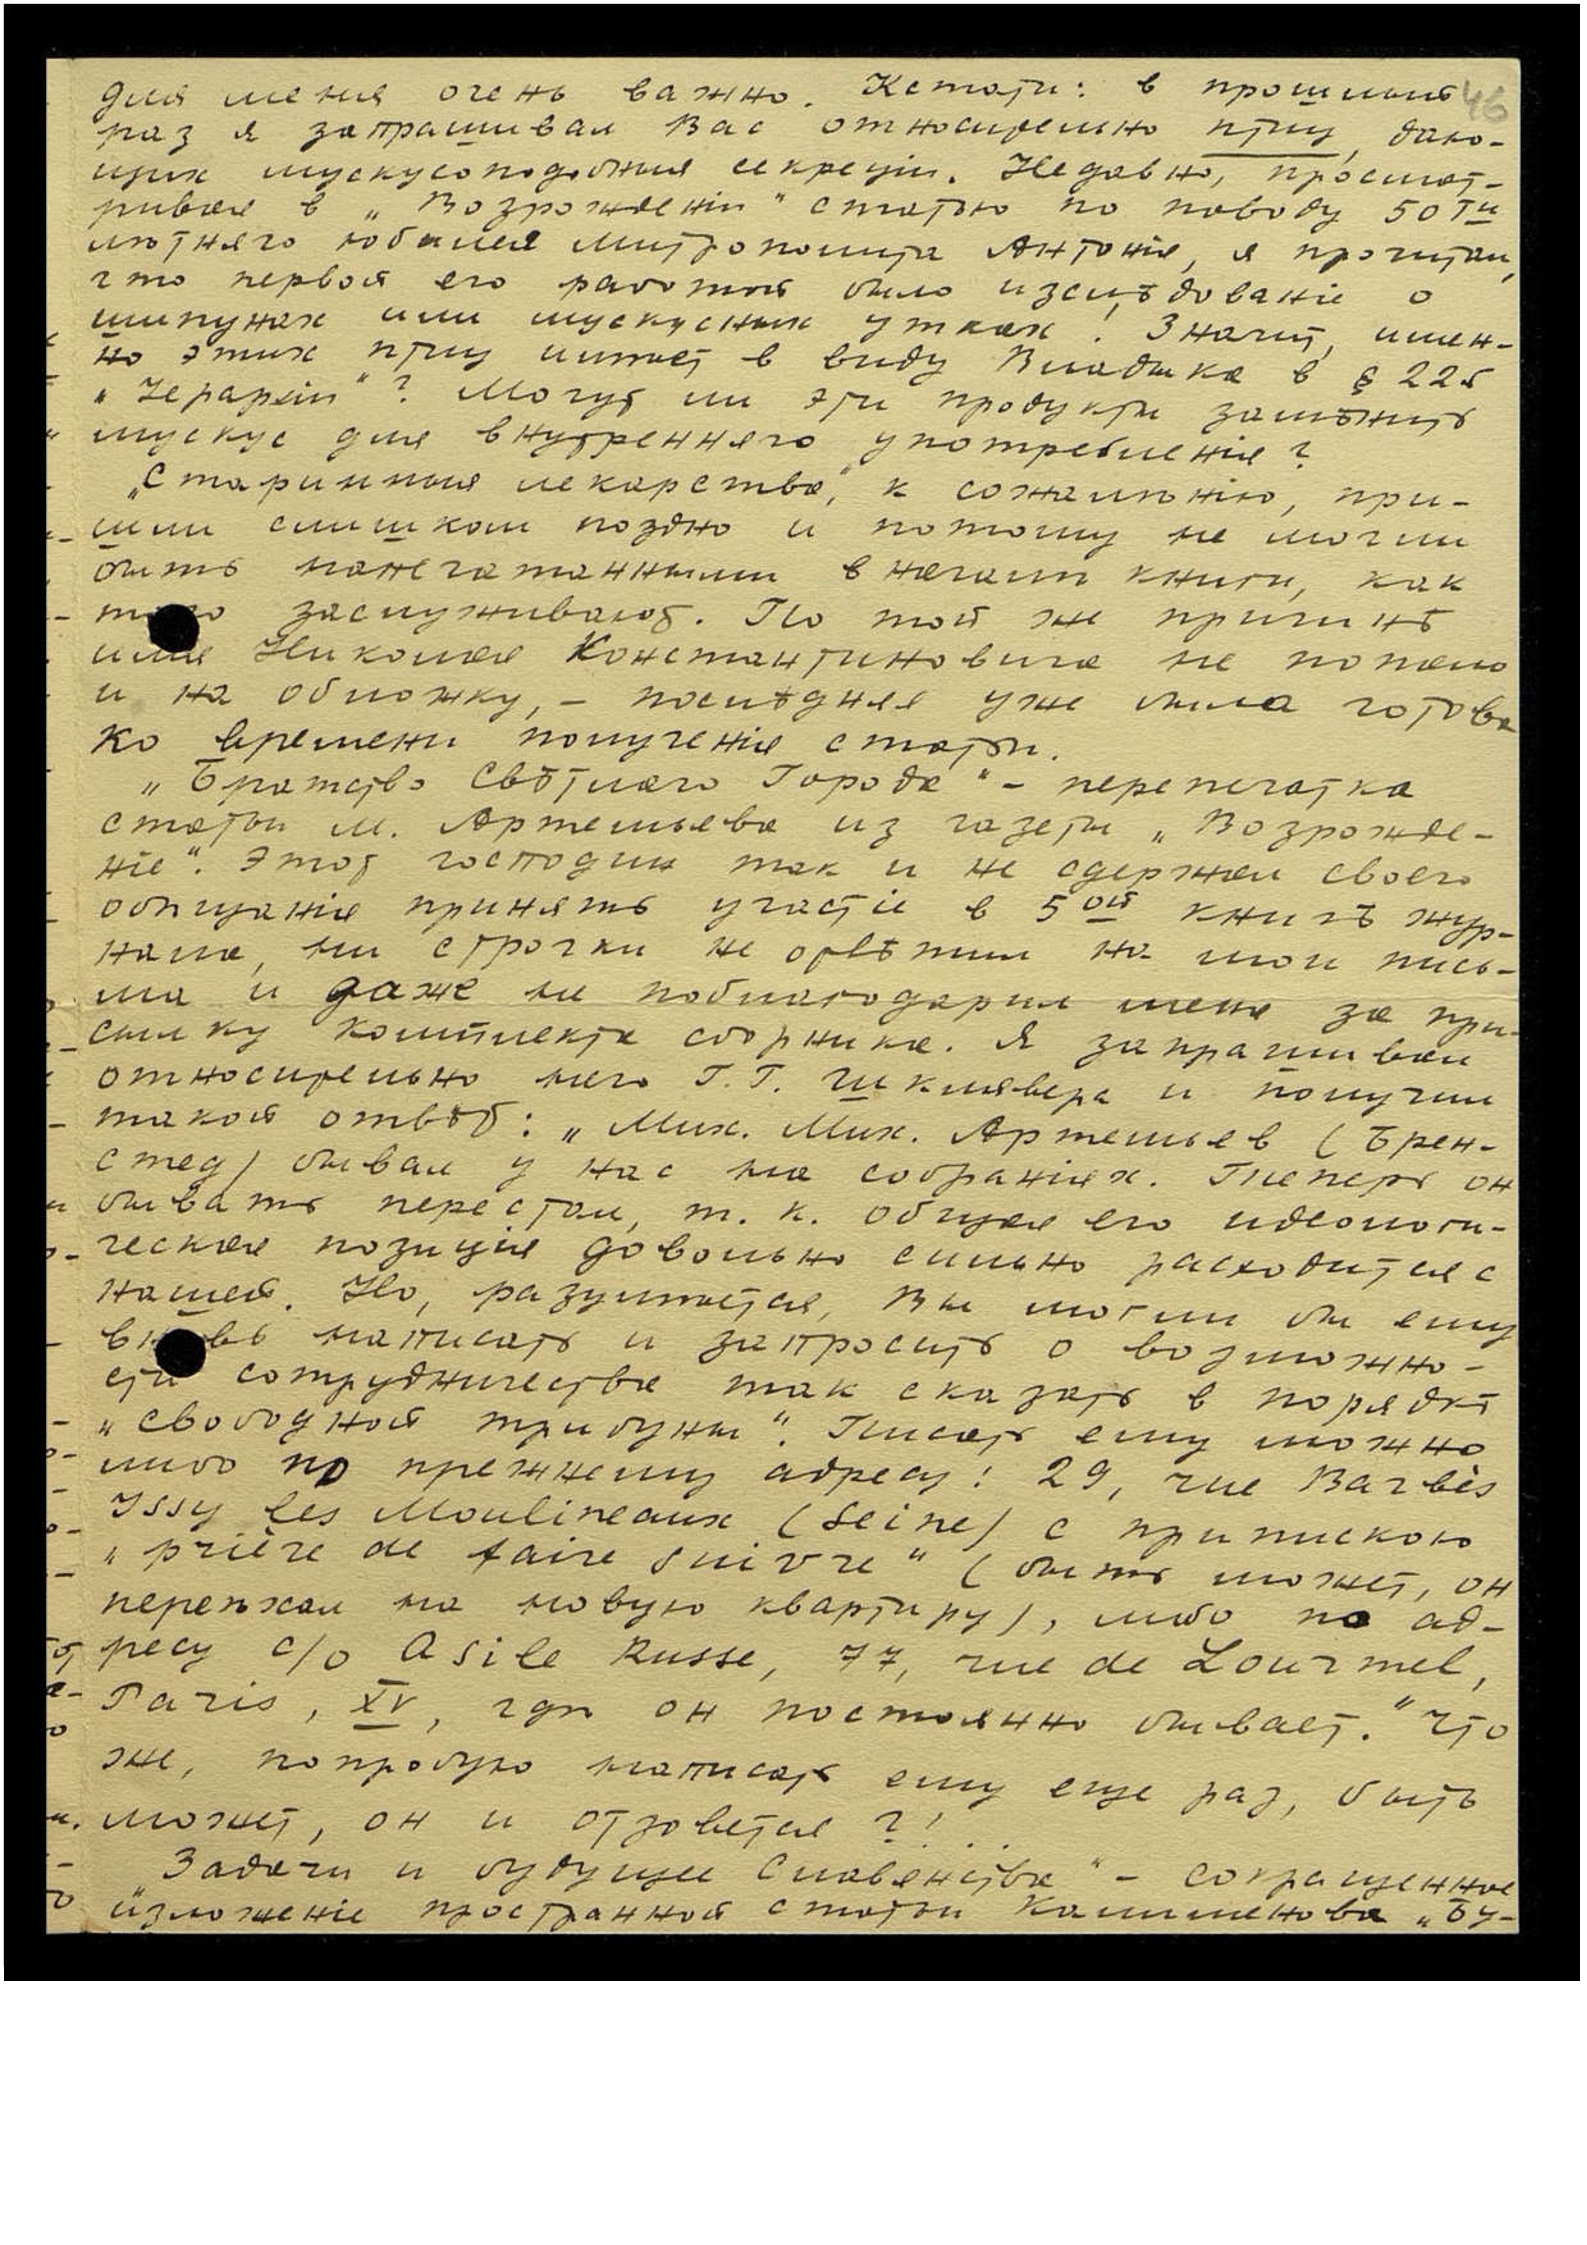 для меня очень важно. Кстати: в прошлый 46
раз я запрашивал Вас относительно птиц, даю-
щих мускусоподобныя секреціи. Недавно, просмат-
ривая в „Возрожденіи" статью по поводу 50ти
лѣтняго юбилея Митрополита Антонія, я прочитал,
что первой его работой было изслѣдованіе о
шипунах или мускусных утках! Значит, имен-
но этих птиц имѣет в виду Владыка в § 225
„Іерархіи"? Могут ли эти продукты замѣнить
мускус для внутренняго употребленія?
„Старинныя лекарства," к сожалѣнію, при-
шли слишком поздно и потому не могли
быть напечатанными в началѣ книги, как
того заслуживают. По той же причинѣ
имя Николая Константиновича не попало
и на обложку, – послѣдняя уже была готова
ко времени полученія статьи.
„Братство Свѣтлаго Города" – перепечатка
статьи М. Артемьева из газеты „Возрожде-
ніе". Этот господин так и не сдержал своего
обѣщанія принять участіе в 5ой книгѣ жур-
нала, ни строчки не отвѣтил на мои пись-
ма и даже не поблагодарил меня за при-
сылку комплекта сборника. Я запрашивал
относительно него Г. Г. Шклявера и получил
такой отвѣт: „Мих. Мих. Артемьев (Брен-
стед) бывал у нас на собраніях. Теперь он
бывать перестал, т. к. общая его идеологи-
ческая позиція довольно сильно расходится с
нашей. Но, разумѣется, Вы могли бы ему
вновь написать и запросить о возможно-
сти сотрудничества так сказать в порядкѣ
„свободной трибуны". Писать ему можно
либо по прежнему адресу: 29, rue Barbès
Issy les Moulineaux (Seine) с припискою
„prière de faire suivre" (быть может, он
переѣхал на новую квартиру), либо по ад-
ресу c/o Asile Russe, 77, rue de Lourmel,
Paris, XV, гдѣ он постоянно бывает." Что
же, попробую написать ему еще раз, быть
может, он и отзовется?!..
„Задачи и будущее Славянства" – сокращенное
изложеніе пространной статьи Калименова „Бу-